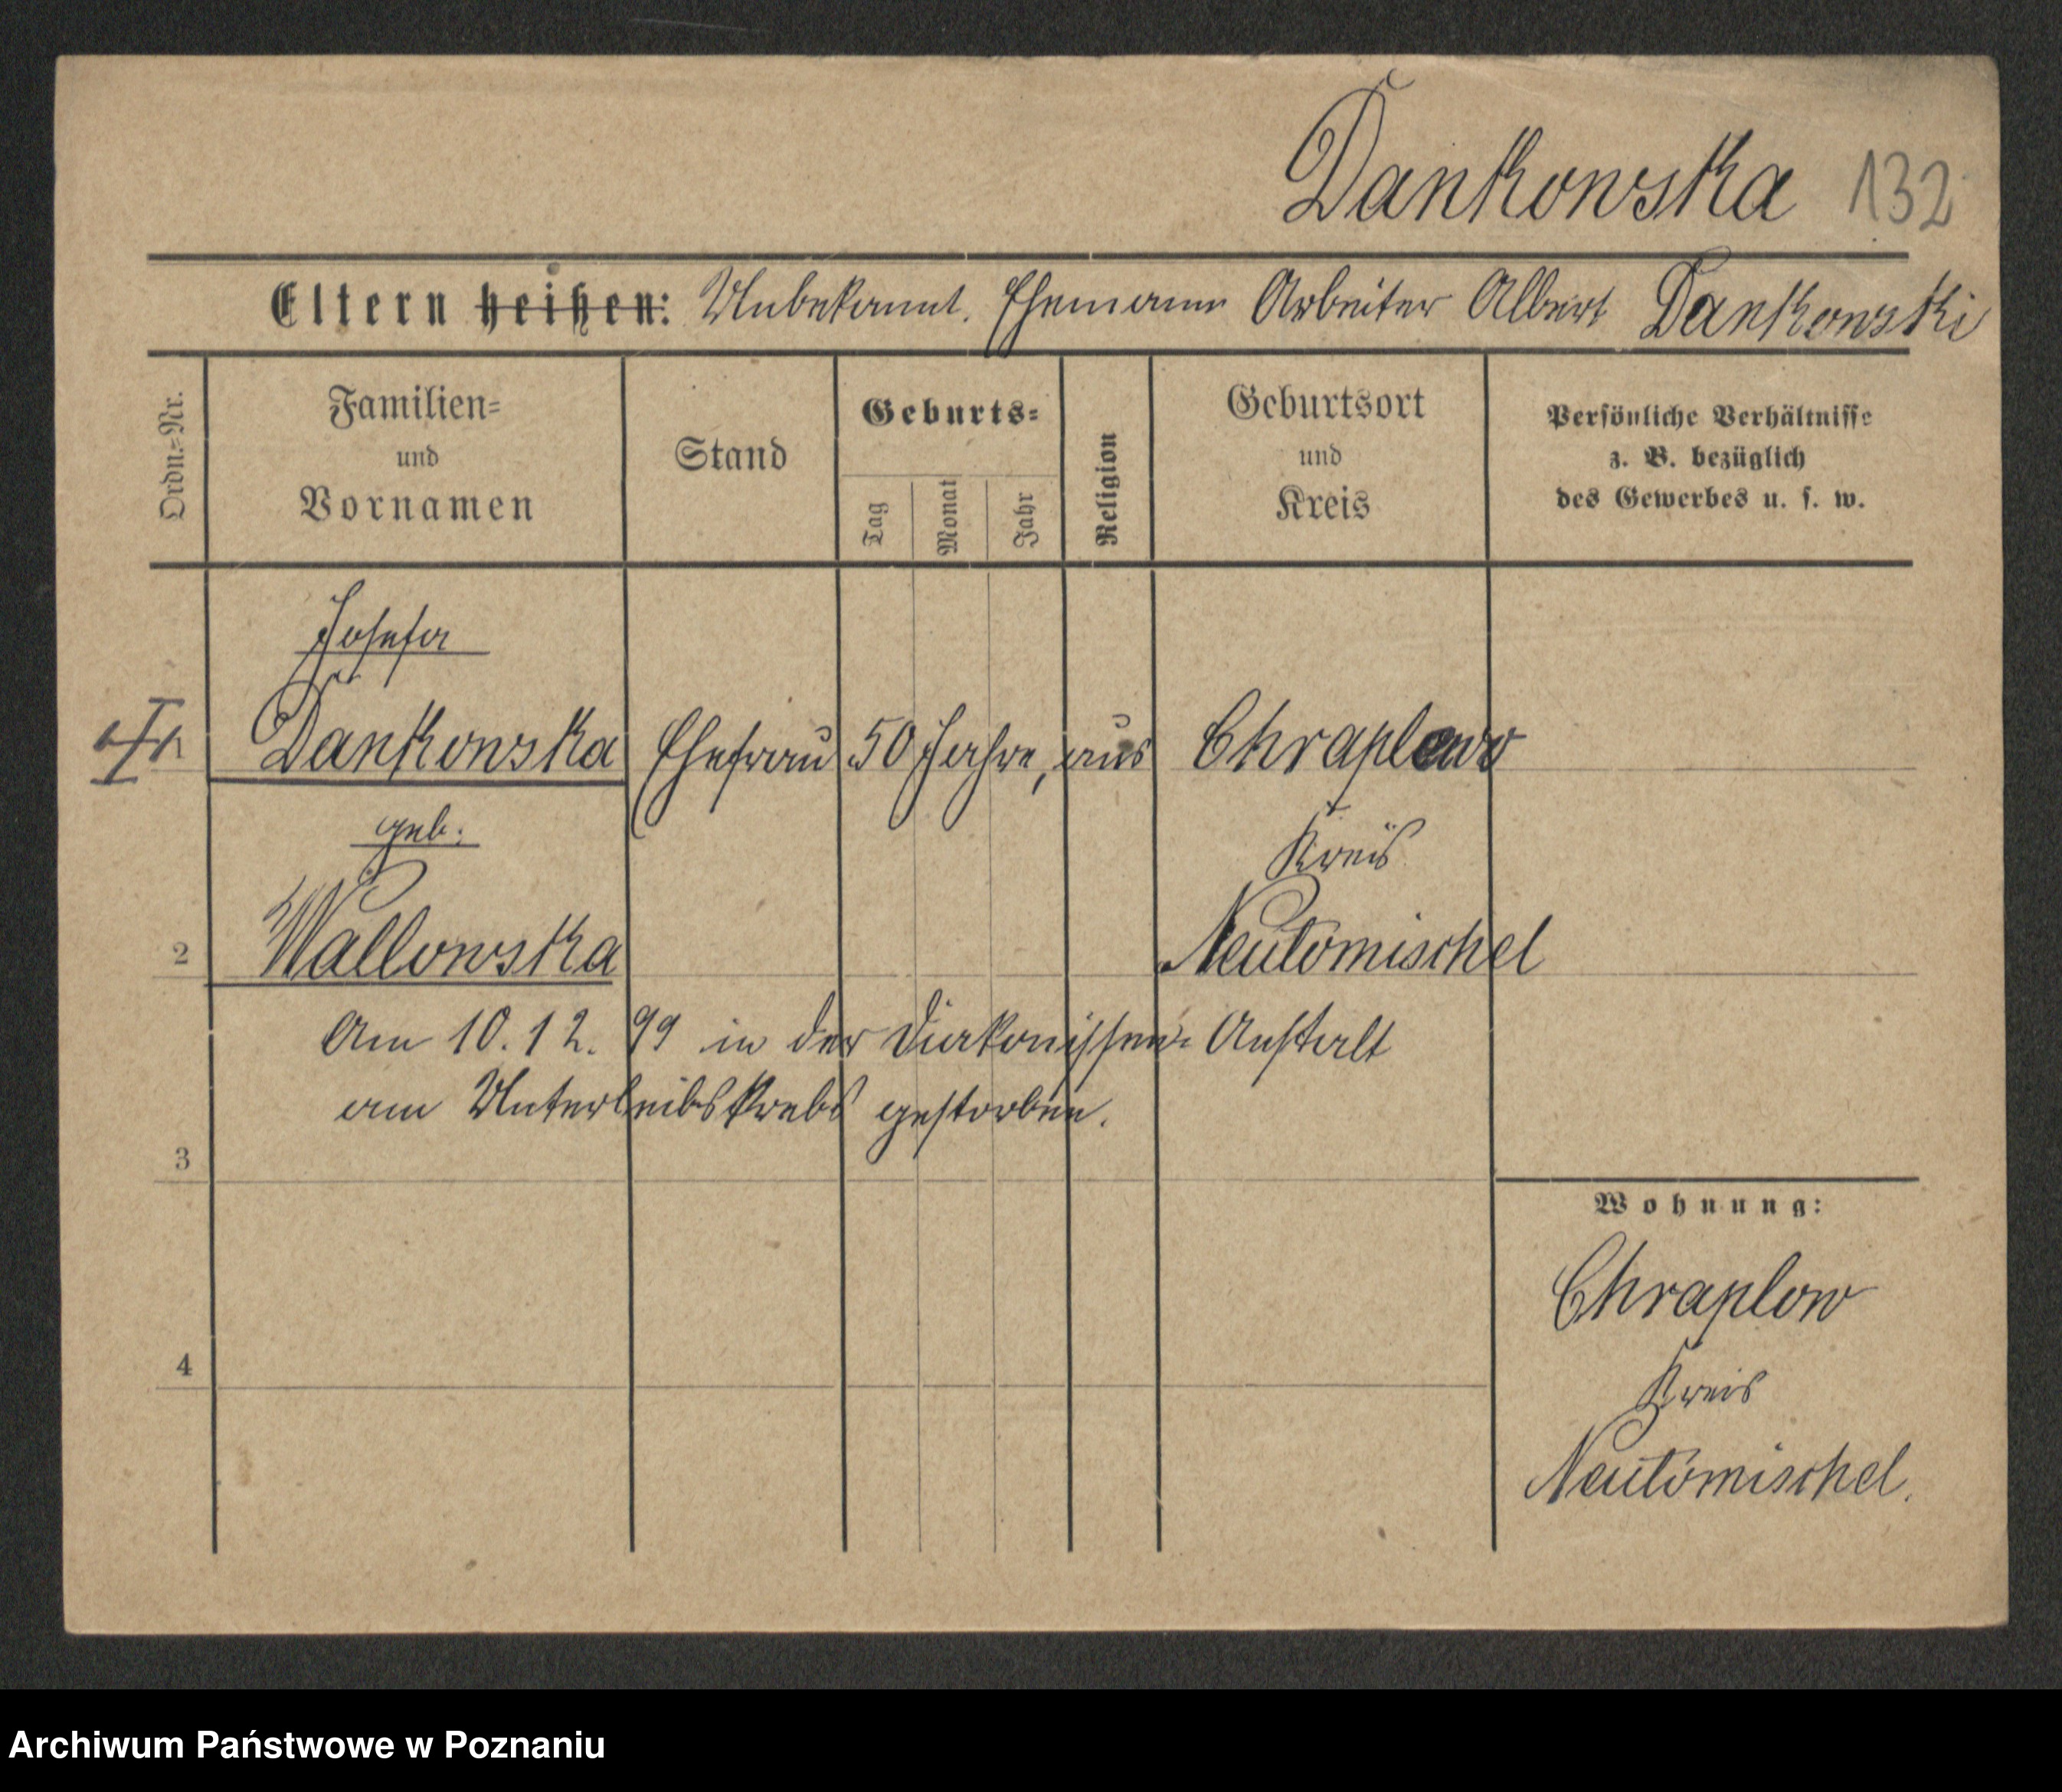 Dankowska 132
Eltern heißen: Unbekannt. Ehemann Arbeiter Albert Dankowski
Ordn.=Nr.
Familien=
und
Vornamen
Stand
Geburts=
Tag
Monat
Jahr
Religion
Geburtsort
und
Kreis
Persönliche Verhältnisse
z. B. bezüglich
des Gewerbes u. s. w.
Josefa
1 Dankowska Ehefrau 50 Jahre, aus Chraplewo
geb.
Kreis
2 Wallowska Neutomischel
Am 10. 12. 99 in der Diakonissen= Anstalt
am Unterleibskrebs gestorben.
3
Wohnung:
Chraplow
4
Kreis
Neutomischel.
Archiwum Państwowe w Poznaniu